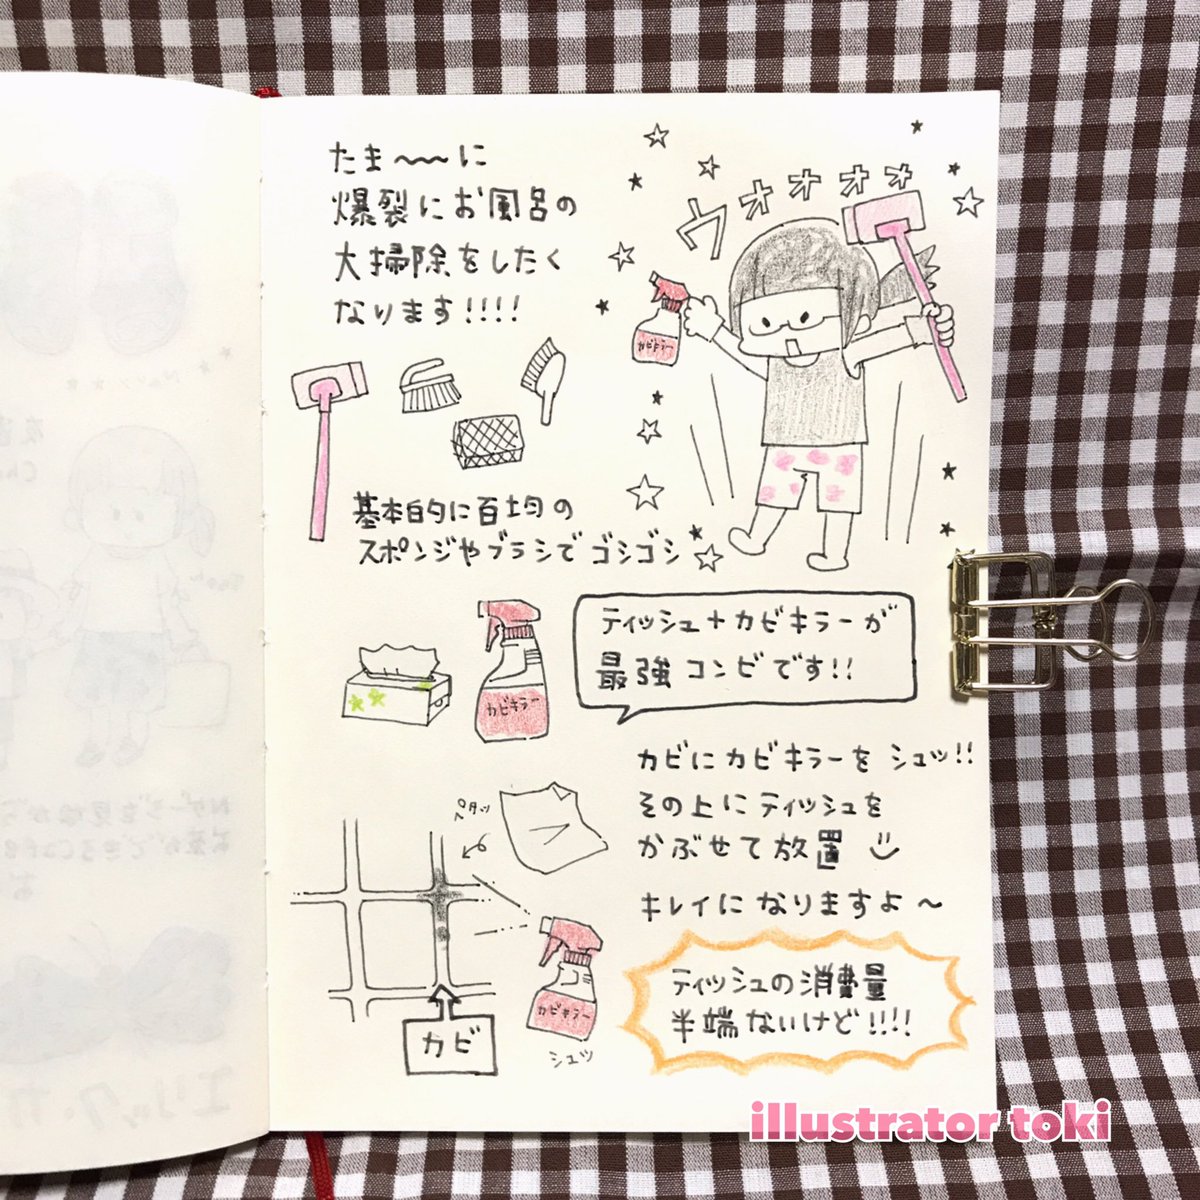 たま〜〜に
爆裂にお風呂の
大掃除をしたく
なります!!!!
ウオオオオ
カビキラー
基本的に百均の
スポンジやブラシでゴシゴシ
カビキラー
ティッシュ+カビキラーが
最強コンビです!!
カビにカビキラーをシュッ!!
その上にティッシュを
かぶせて放置
キレイになりますよ〜
ペタッ
カビキラー
シュッ
カビ
ティッシュの消費量
半端ないけど!!!!
illustrator toki